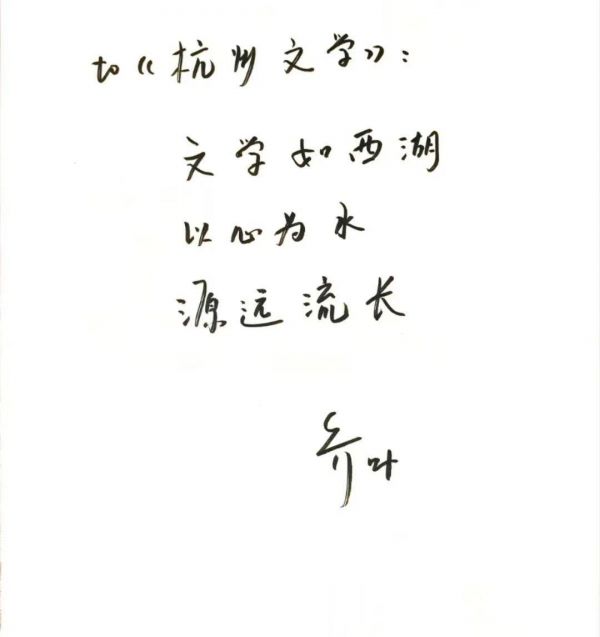 to《杭州文学》:
文学如西湖
以心为水
源远流长
乔叶